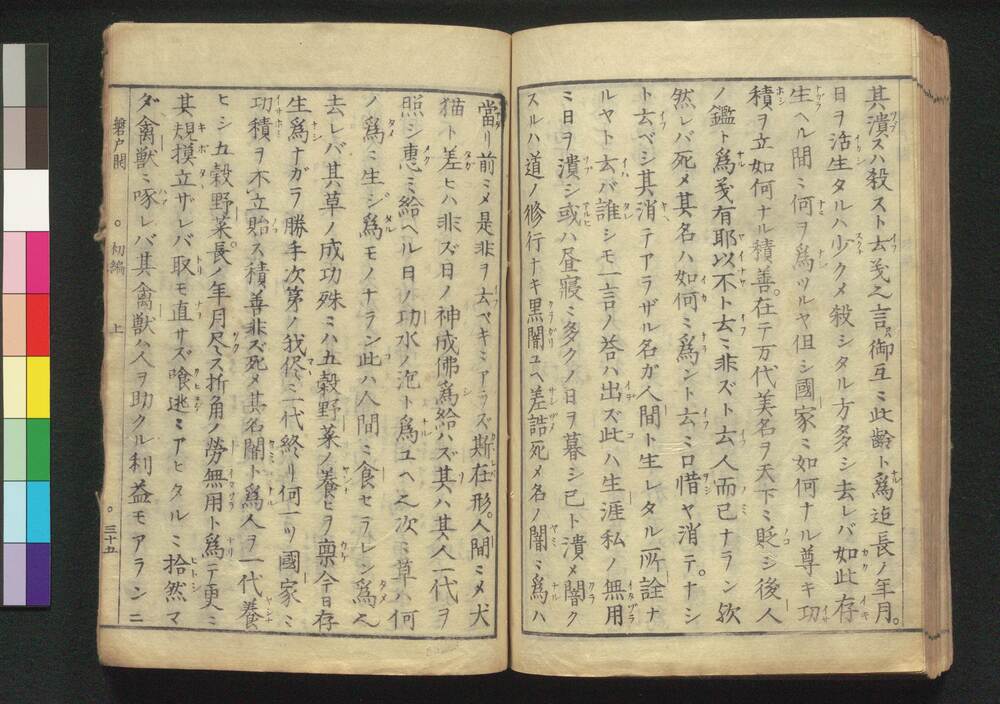 其潰ズハ殺スト云義之言御互ミ此齢ト為迠長ノ年月。
日ヲ活生タルハ少クメ殺シタル方多シ去レバ如此存
生ヘル間ミ何ヲ為ツルヤ但シ國家ミ如何ナル尊キ功
積ヲ立如何ナル積善。在テ万代美名ヲ天下ミ貶シ後人
ノ鑑ト為義有耶以不ト云ミ非ズト云人而已ナラン欤
然レバ死メ其名ハ如何ミ為ント云ミ口惜ヤ消テ。ナシ
ト云ベシ其消テアラザル名ガ人間ト生レタル所詮ナ
ルヤト云バ誰シモ一言ノ答ハ出ズ此ハ生涯私ノ無用
ミ日ヲ潰シ或ハ昼寝ミ多クノ日ヲ暮シ已ト潰メ闇ク
スルハ道ノ修行ナキ黒闇ユヘ差詰死メ名ノ闇ミ為ハ
當リ前ミメ是非ヲ云ベキミアラズ斯在形。人間ミメ犬
猫ト差ヒハ非ズ日ノ神成佛為給ハズ其ハ其人一代ヲ
照シ恵ミ給ヘル日ノ功水ノ泡ト為ユヘ之次ミ草ハ何
ノ為ミ生ジ為モノナラン此ハ人間ミ食セラレン為之
去レバ其草ノ成功殊ミハ五穀野菜ノ養ヒヲ稟今日存
生為ナガラ勝手次第ノ我侭ミ一代終リ何一ツ國家ミ
功積ヲ不立貽ス積善非ズ死メ其名闇ト為人ヲ一代養
ヒシ五穀野菜。長ノ年月尽ス折角ノ勞無用ト為テ更ミ
其規摸立ザレバ取モ直サズ喰逃ミアヒタルミ拾然マ
ダ禽獣ミ啄レバ其禽獣ハ人ヲ助クル利益モアランニ
磐戸開 初編 上 三十五